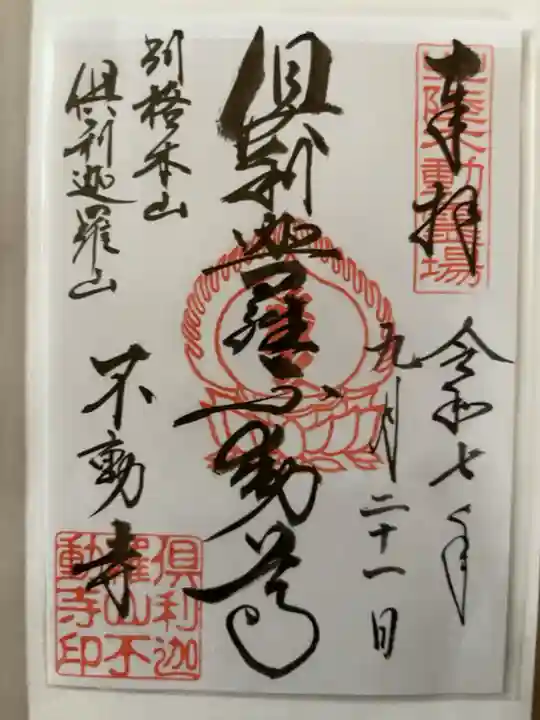 奉拝
令和七年
九月二十一日
倶利迦羅不動尊
別格本山
倶利迦羅山
不動寺
倶利迦
羅山不
動寺印